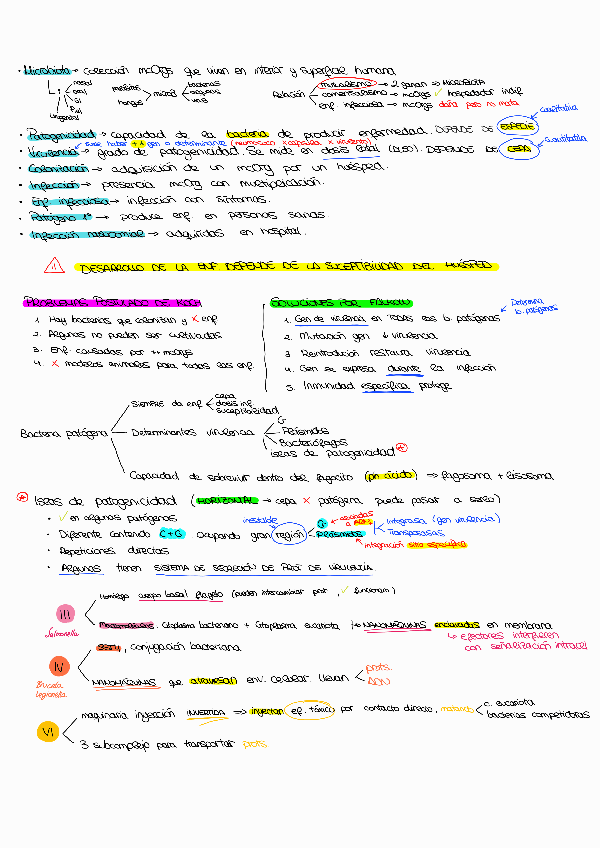 · Microbiota → colección mcOrgs que viven en interior y superficie humana
nasal
oral
GI
Piel
Urogenital
micosis
hongos
bacterias
arqueas
virus
Relación
mutualismo → 2 ganan → MICROBIOTA
comensalismo → mcOrgs ✓ hospedador indif.
enf. infecciosa → mcOrgs daña pero no mata
cualitativa
· Patogenicidad → capacidad de la bacteria de producir enfermedad. DEPENDE DE ESPECIE
suele haber ++ gen o determinante (neumococo × capsula × virulento)
cuantitativa
· Virulencia → grado de patogenicidad. Se mide en dosis letal (DL50). DEPENDE DE CEPA
· Colonización → adquisición de un mcOrg por un huésped.
· Infección → presencia mcOrg con multiplicación.
· Enf. infecciosa → infección con síntomas.
· Patógeno 1º → produce enf. en personas sanas.
· Infección nosocomial → adquiridas en hospital.
DESARROLLO DE LA ENF. DEPENDE DE LA SUCEPTIBILIDAD DEL HUÉSPED
PROBLEMAS POSTULADO DE KOCH
1. Hay bacterias que colonizan y × enf
2. Algunos no pueden ser cultivadas
3. Enf. causadas por ++ mcOrgs
4. × modelos animales para todas las enf.
SOLUCIONES POR FALKOW
1. Gen de virulencia en TODAS las b. patógenas
Determina b. patógenas
2. Mutación gen ↓ virulencia
3. Reintroducción restaura virulencia
4. Gen se expresa durante la infección
5. Inmunidad específica protege
Bacteria patógena
Siempre da enf.
cepa
dosis inf.
suceptibilidad
Determinantes virulencia
Cr
Plásmidos
Bacteriófagos
Islas de patogenicidad *
Capacidad de sobrevivir dentro del fagocito (pH ácido) → fagosoma + lisosoma
* Islas de patogenicidad (HORIZONTAL → cepa × patógena puede pasar a serlo)
· ✓ en algunos patógenos
· Diferente contenido C+G ocupando gran región
inestable
Cr
Plásmidos
Integrasa (gen virulencia)
Transposasas
integración sitio específica
· Repeticiones directas
· Algunos tienen SISTEMA DE SECRECIÓN DE PROT. DE VIRULENCIA
III
Salmonella
Homólogo cuerpo basal flagelo (pueden intercambiar prot, ✓ funcionan)
Citoplasma bacteriano + citoplasma eucariota NANOMÁQUINAS enclavadas en membrana
↳ efectores interfieren
con señalización intracel
IV
Brucela
legionella
conjugación bacteriana
NANOMÁQUINAS que atraviesan env. celular. Llevan
prots.
ADN
VI
maquinaria inyección INVERTIDA → inyectan ef. tóxico por contacto directo, matando
c. eucariota
bacterias competidoras
3 subcomplejo para transportar prots.